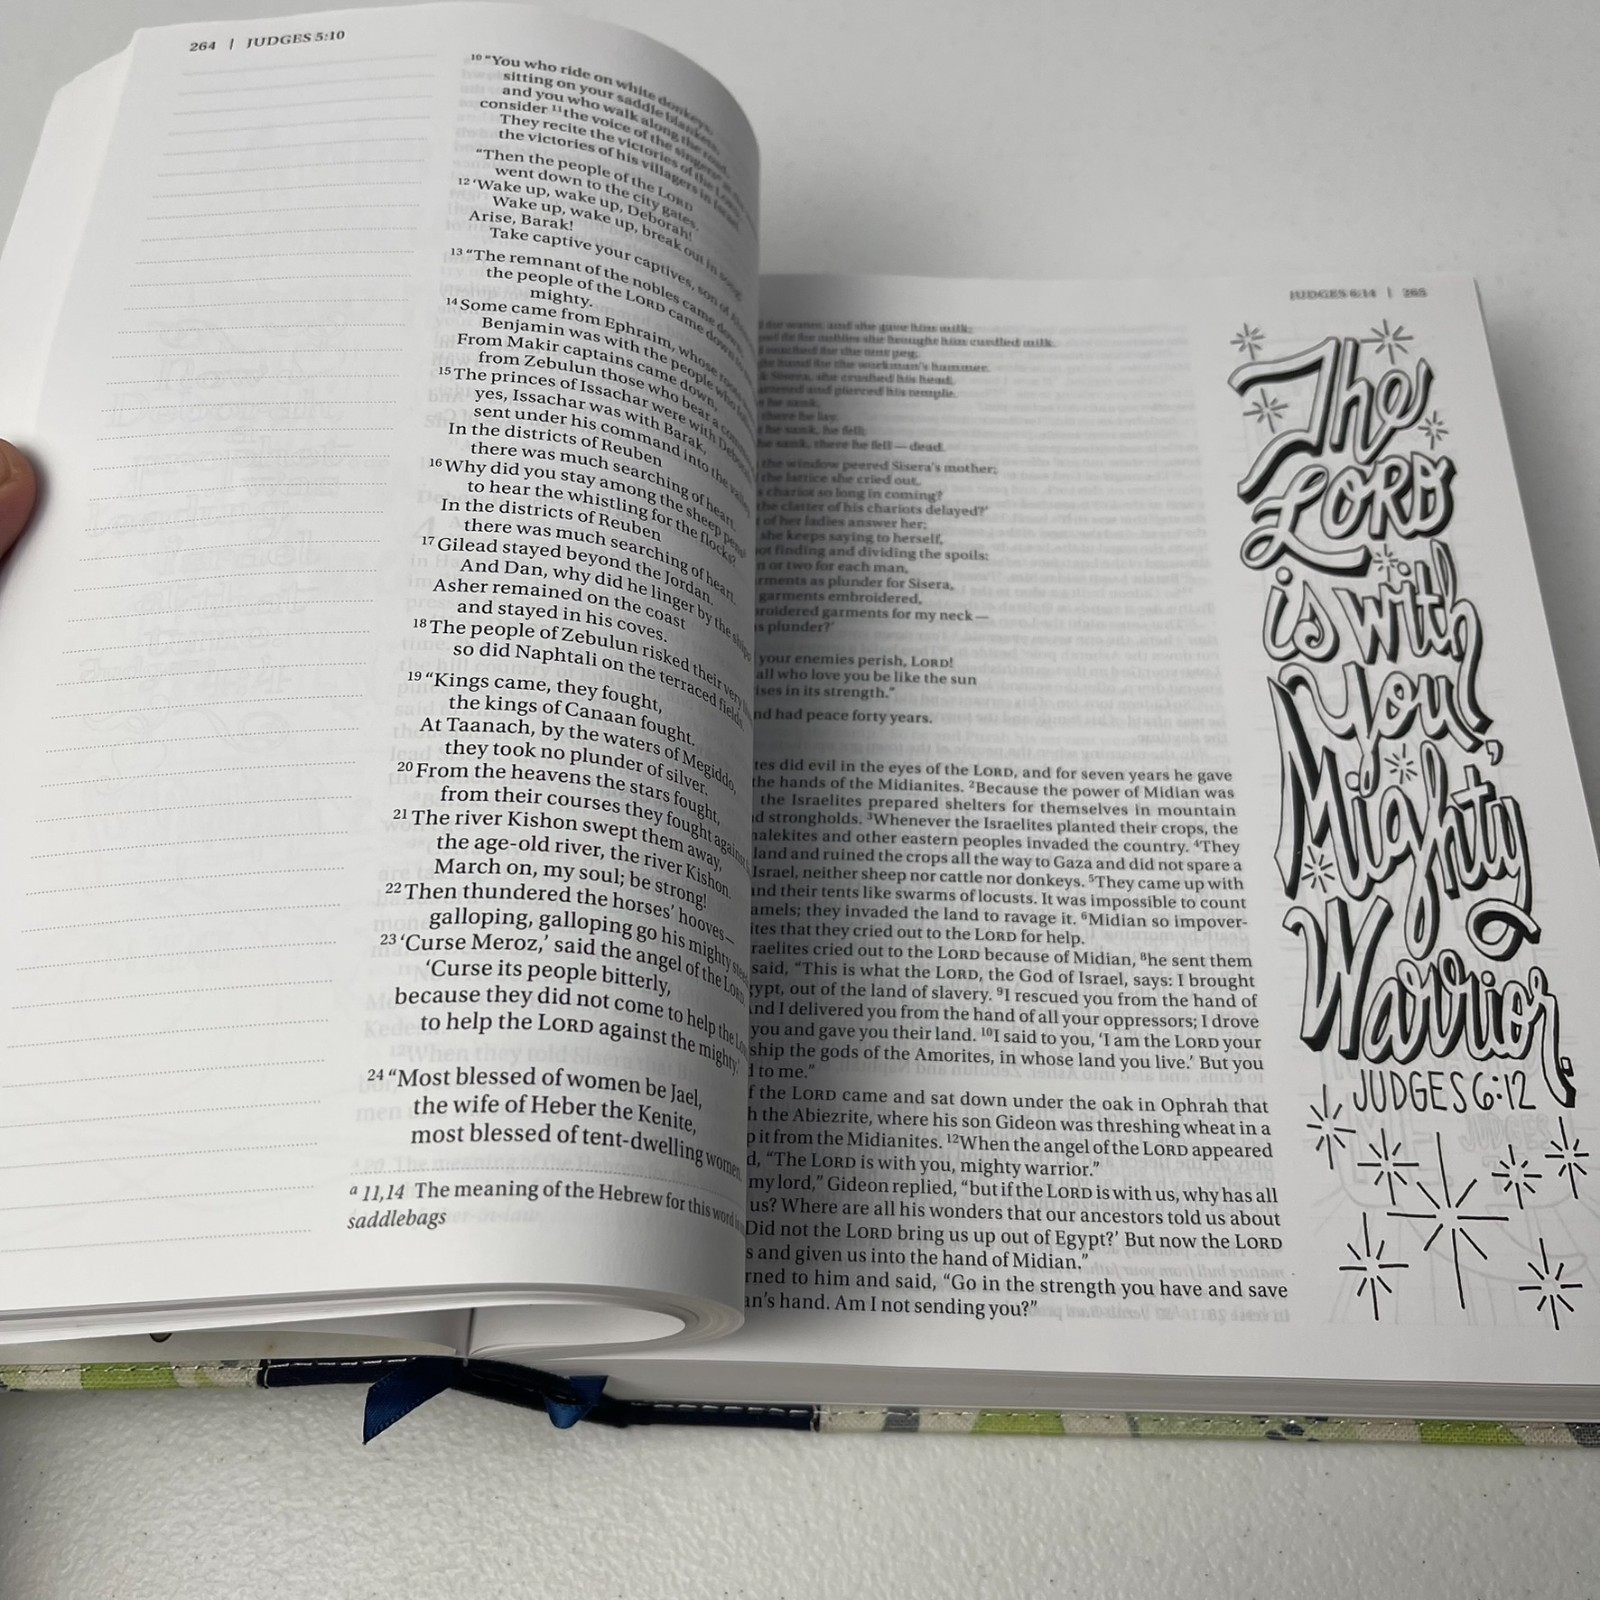 264 | JUDGES 5:10
10 "You who ride on white donkeys,
sitting on your saddle blankets,
and you who walk along the road,
consider 11 the voice of the singers
They recite the victories of the LORD,
the victories of his villagers in Israel.
"Then the people of the LORD
went down to the city gates.
12 'Wake up, wake up, Deborah!
Wake up, wake up, break out in song!
Arise, Barak!
Take captive your captives, son of
13 "The remnant of the nobles came down;
the people of the LORD came down
mighty.
14 Some came from Ephraim, whose roots
Benjamin was with the people who
From Makir captains came down,
from Zebulun those who bear a
15 The princes of Issachar were with Deborah;
yes, Issachar was with Barak,
sent under his command into the valley.
In the districts of Reuben
there was much searching of heart.
16 Why did you stay among the sheep pens
to hear the whistling for the flocks?
In the districts of Reuben
there was much searching of heart.
17 Gilead stayed beyond the Jordan.
And Dan, why did he linger by the ships?
Asher remained on the coast
and stayed in his coves.
18 The people of Zebulun risked their very
so did Naphtali on the terraced fields.
19 "Kings came, they fought,
the kings of Canaan fought.
At Taanach, by the waters of Megiddo,
they took no plunder of silver.
20 From the heavens the stars fought,
from their courses they fought against
21 The river Kishon swept them away,
the age-old river, the river Kishon.
March on, my soul; be strong!
22 Then thundered the horses' hooves—
galloping, galloping go his mighty
23 'Curse Meroz,' said the angel of the LORD.
'Curse its people bitterly,
because they did not come to help the
to help the LORD against the mighty.'
24 "Most blessed of women be Jael,
the wife of Heber the Kenite,
most blessed of tent-dwelling women.
a 11,14 The meaning of the Hebrew for this word
saddlebags
JUDGES 6:14 | 265
for water, and she gave him milk;
for nobles she brought him curdled milk.
reached for the tent peg,
hand for the workman's hammer.
Sisera, she crushed his head,
and pierced his temple.
he sank,
there he lay.
he sank, he fell;
he sank, there he fell — dead.
the window peered Sisera's mother;
the lattice she cried out,
chariot so long in coming?
the clatter of his chariots delayed?'
of her ladies answer her;
she keeps saying to herself,
finding and dividing the spoils:
or two for each man,
garments as plunder for Sisera,
garments embroidered,
embroidered garments for my neck —
as plunder?'
your enemies perish, LORD!
all who love you be like the sun
rises in its strength."
had peace forty years.
did evil in the eyes of the LORD, and for seven years he gave
the hands of the Midianites. 2 Because the power of Midian was
the Israelites prepared shelters for themselves in mountain
strongholds. 3 Whenever the Israelites planted their crops, the
malekites and other eastern peoples invaded the country. 4 They
land and ruined the crops all the way to Gaza and did not spare a
Israel, neither sheep nor cattle nor donkeys. 5 They came up with
and their tents like swarms of locusts. It was impossible to count
amels; they invaded the land to ravage it. 6 Midian so impover-
ites that they cried out to the LORD for help.
raelites cried out to the LORD because of Midian, 8 he sent them
said, "This is what the LORD, the God of Israel, says: I brought
ypt, out of the land of slavery. 9 I rescued you from the hand of
And I delivered you from the hand of all your oppressors; I drove
you and gave you their land. 10 I said to you, 'I am the LORD your
ship the gods of the Amorites, in whose land you live.' But you
to me."
f the LORD came and sat down under the oak in Ophrah that
h the Abiezrite, where his son Gideon was threshing wheat in a
p it from the Midianites. 12 When the angel of the LORD appeared
d, "The LORD is with you, mighty warrior."
my lord," Gideon replied, "but if the LORD is with us, why has all
us? Where are all his wonders that our ancestors told us about
Did not the LORD bring us up out of Egypt?' But now the LORD
s and given us into the hand of Midian."
rned to him and said, "Go in the strength you have and save
an's hand. Am I not sending you?"
The
LORD
is with
you,
Mighty
Warrior.
JUDGES 6:12